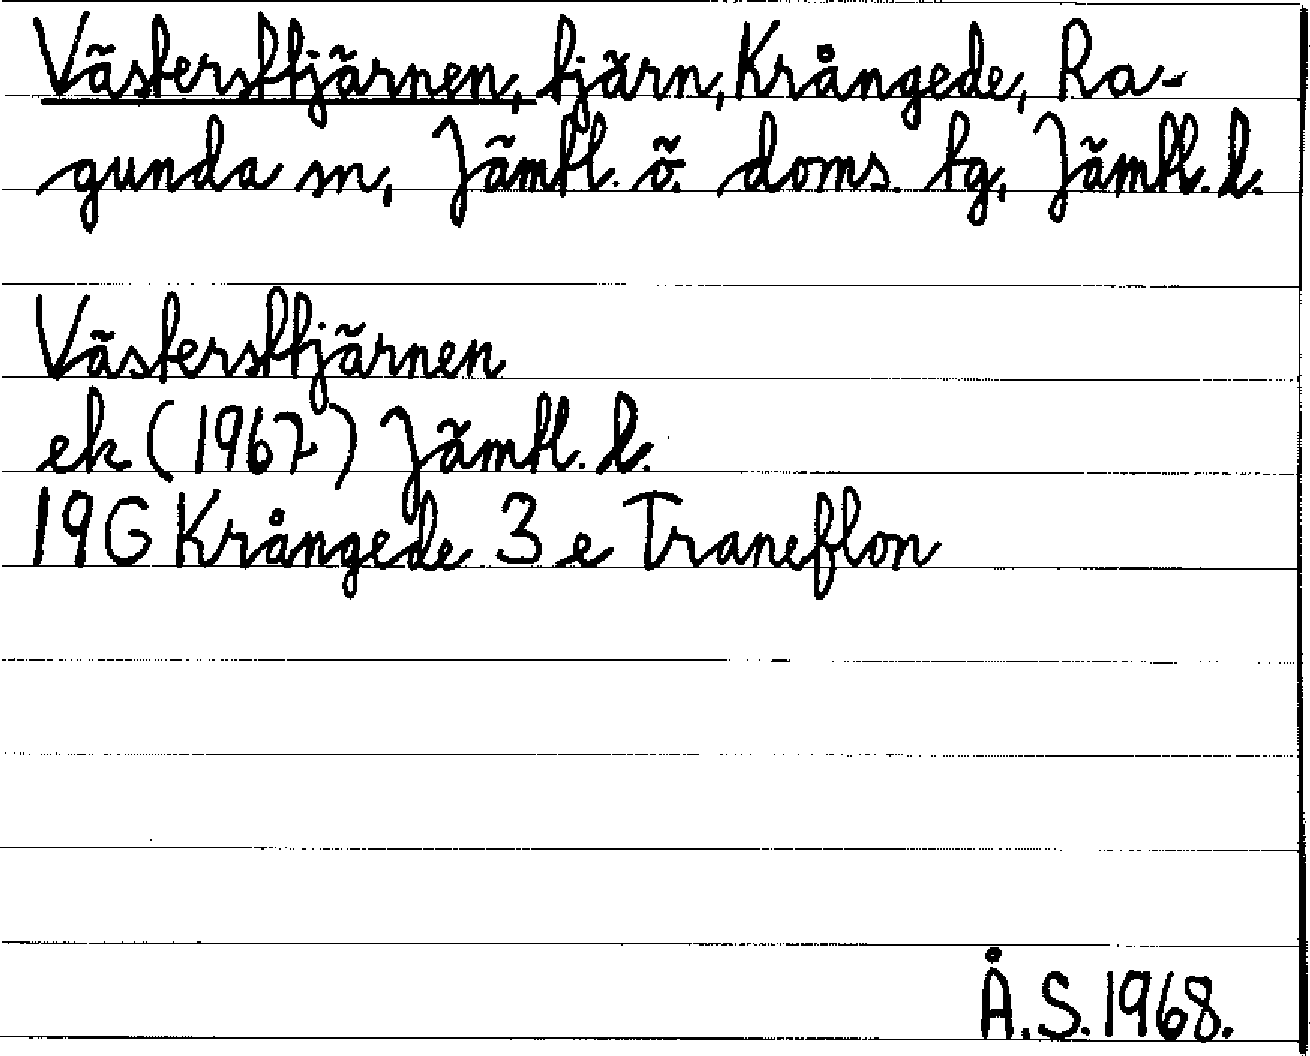 Västerstjärnen, tjärn, Krångede, Ra-
gunda sn, Jämtl. ö. doms. tg, Jämtl. l.
Västerstjärnen
ek (1967) Jämtl. l.
19G Krångede 3 e Traneflon
Å.S. 1968.